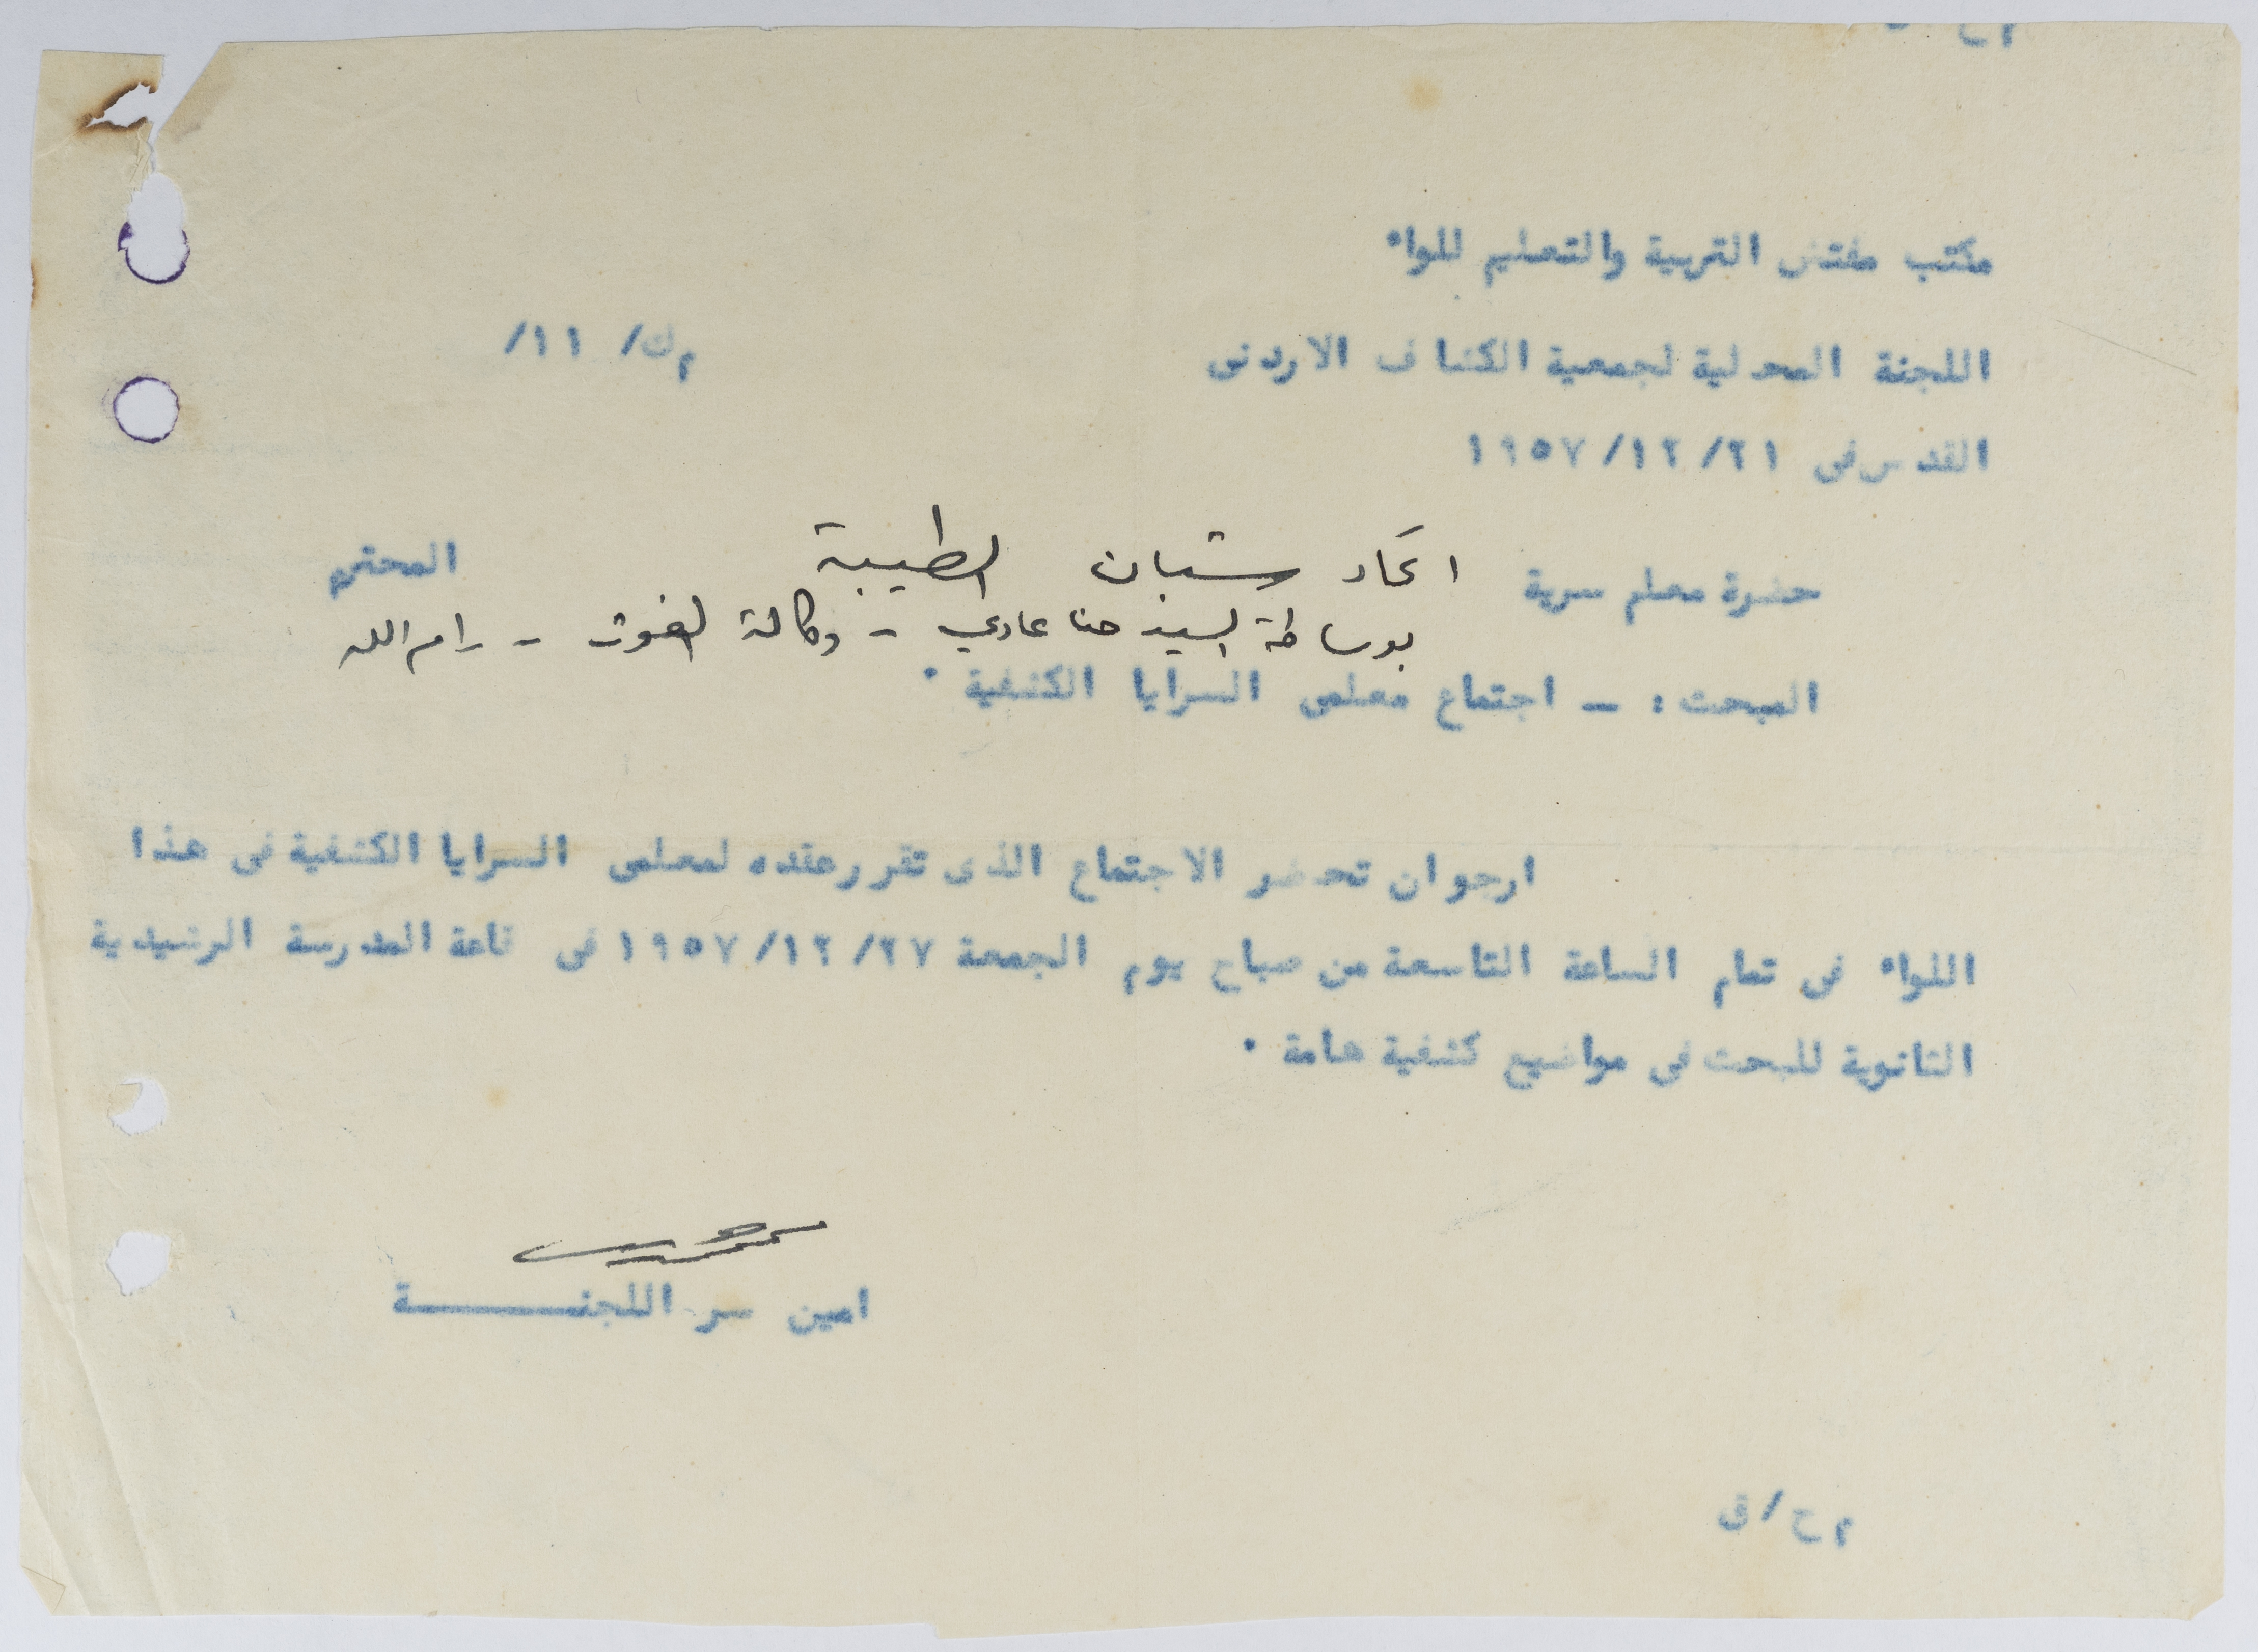 مكتب مفتش التربية والتعليم للواء
اللجنة المحلية لجمعية الكشاف الاردنى
م ك/ ١١/
القدس فى ٢١/ ١٢/ ١٩٥٧
حضرة معلم سرية اتحاد شبان الطيبة المحترم
بوساطة السيد حنا عادي - وكالة الغوث - رام الله
المبحث : - اجتماع معلمى السرايا الكشفية ٠
ارجو ان تحضر الاجتماع الذى تقرر عقده لمعلمى السرايا الكشفية فى هذا
اللواء فى تمام الساعة التاسعة من صباح يوم الجمعة ٢٧/ ١٢/ ١٩٥٧ فى قاعة المدرسة الرشيدية
الثانوية للبحث فى مواضيع كشفية هامة ٠
امين سر اللجنـــــــة
م ح / ق